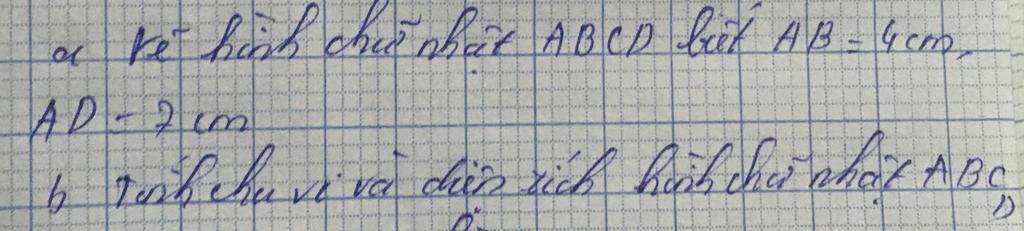 a Vẽ hình chữ nhật ABCD biết AB = 4cm,
AD = 7 cm
b Tính chu vi và diện tích hình chữ nhật ABCD